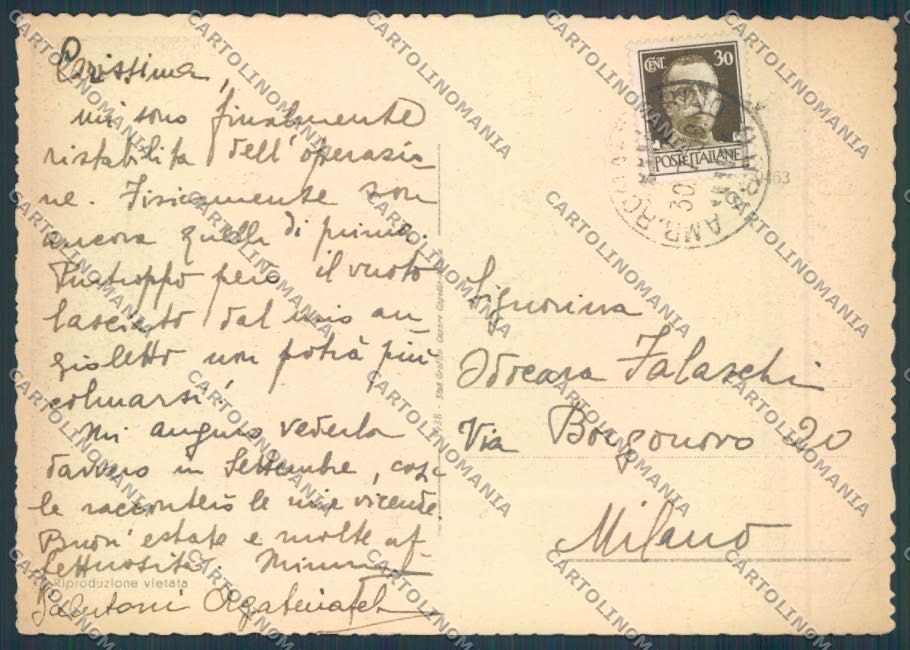 Carissima,
mi sono finalmente
ristabilita dell'operazio-
ne. Fisicamente son
ancora quella di prima.
Purtroppo però il vuoto
lasciato dal mio an-
gioletto non potrà più
colmarsi
Mi auguro vederla
davvero in Settembre, così
le racconterò le mie vicende
Buon'estate e molte af-
fettuosità.
Riproduzione vietata
CENT. 30
POSTE ITALIANE
Signorina
Falaschi
Via Borgonovo 20
Milano
CARTOLINOMANIA